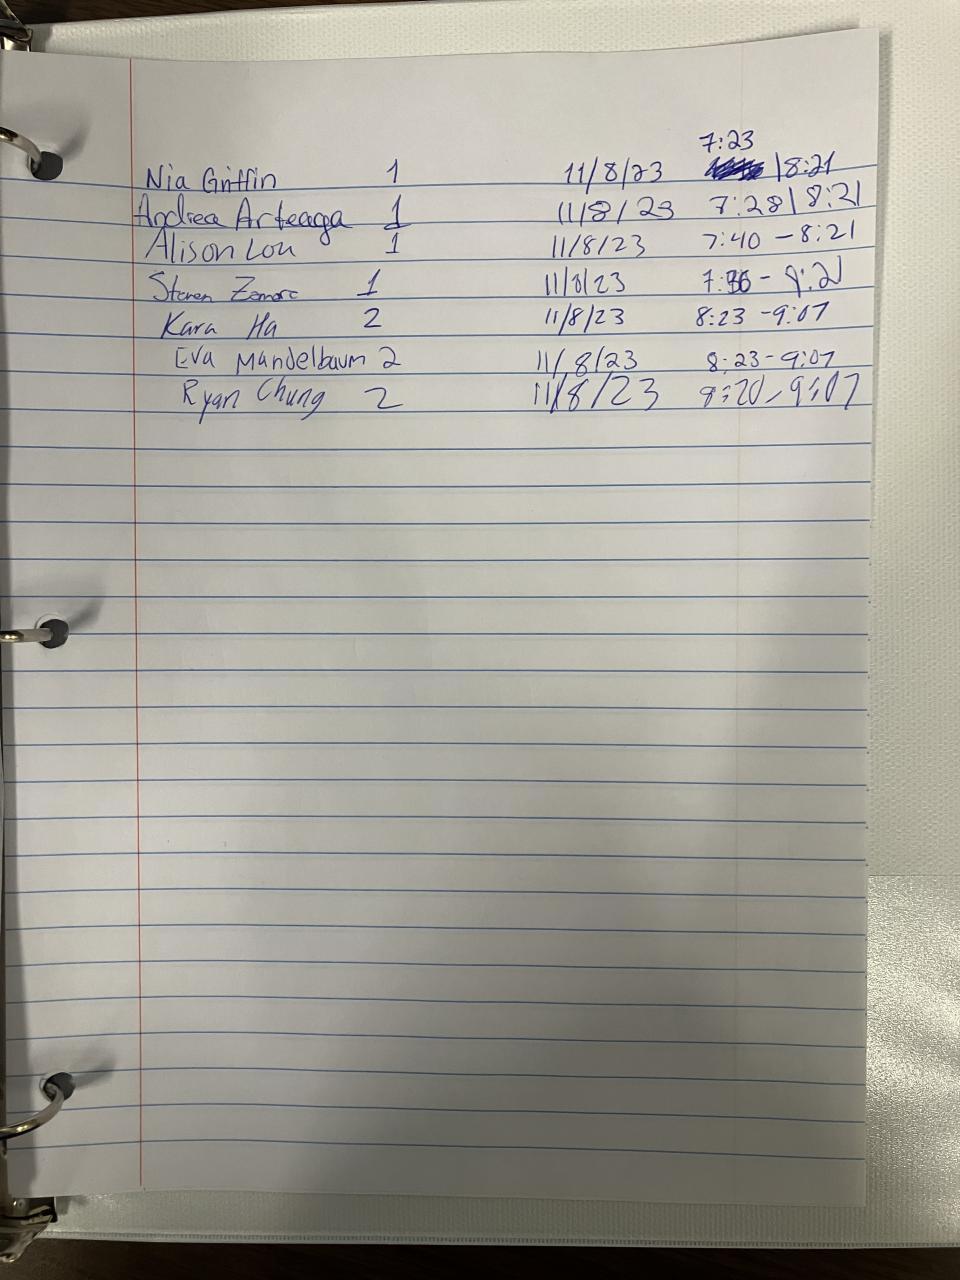 7:23
Nia Griffin 1 11/8/23 | 8:21
Andrea Arteaga 1 11/8/23 7:28 | 8:21
Alison Lou 1 11/8/23 7:40 - 8:21
Steven 1 11/8/23 7:36 - 8:21
Kara Ha 2 11/8/23 8:23 - 9:07
Eva Mandelbaum 2 11/8/23 8:23 - 9:07
Ryan Chung 2 11/8/23 8:20 - 9:07